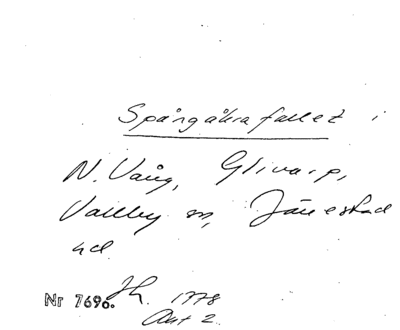 Spångåkrafallet i
N. Vång, Glivarp,
Vallby sn, Järrestad
hd
Nr 7696. Jh. 1778
Akt 2